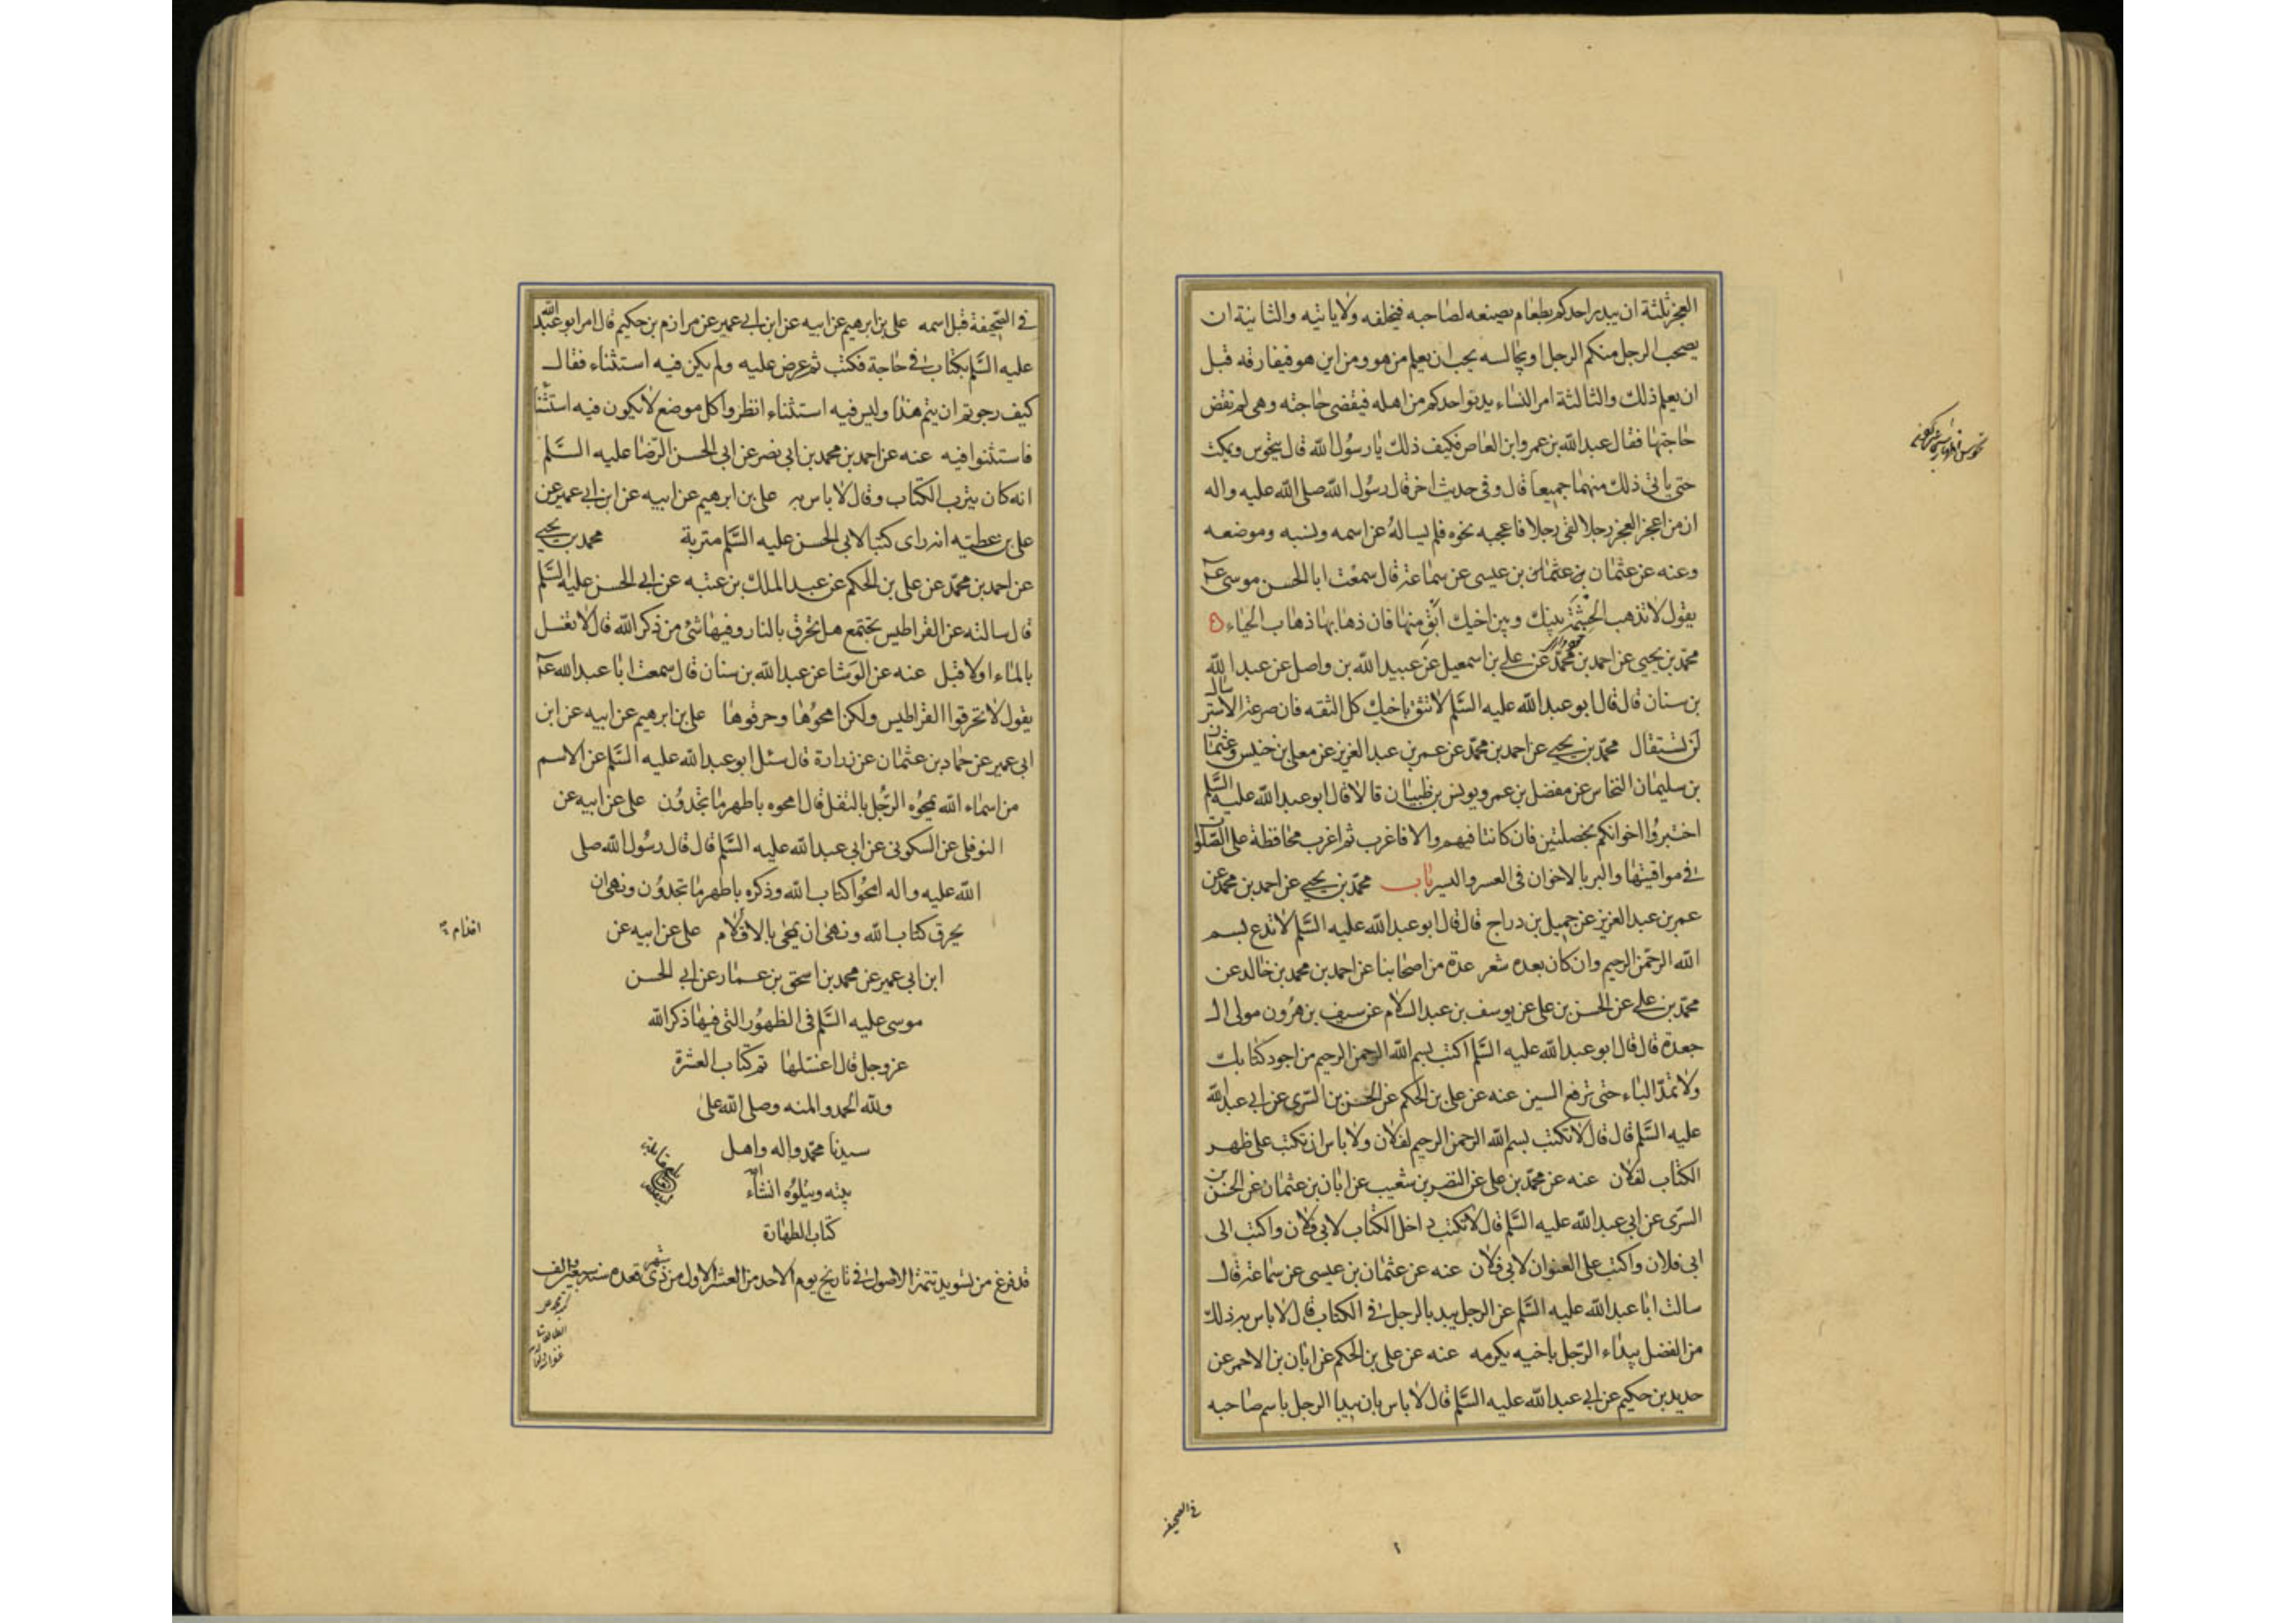 العجز ثلثة ان يبدر احدكم بطعام يصنعه لصاحبه فيخلفه ولا ياتيه والثانية ان
يصحب الرجل منكم الرجل او يجالسه يحب ان يعلم من هو ومن اين هو فيفارقه قبل
ان يعلم ذلك والثالثة امر النساء يدنو احدكم من اهله فيقضى حاجته وهى لم تقض
حاجتها فقال عبد الله بن عمرو ابن العاص فكيف ذلك يا رسول الله قال يتحوس ويمكث
حتى ياتى ذلك منهما جميعا قال وفى حديث اخر قال رسول الله صلى الله عليه واله
ان من اعجز العجز رجلا لقى رجلا فاعجبه نحوه فلم يساله عن اسمه ونسبه وموضعه
وعنه عن عثمان بن عثمان بن عيسى عن سماعة قال سمعت ابا الحسن موسى عم
يقول لا تذهب الحشمة بينك وبين اخيك ابق منها فان ذهابها ذهاب الحياء
محمد بن يحيى عن احمد بن محمد عن على بن اسمعيل عن عبيد الله بن واصل عن عبد الله
بن سنان قال قال ابو عبد الله عليه السلم لا تثق باخيك كل الثقه فان صرعة الاسترسال
لن تستقال محمد بن يحيى عن احمد بن محمد عن عمر بن عبد العزيز عن معلى بن خنيس وعثمان
بن سليمان النخاس عن مفضل بن عمر ويونس بن ظبيان قالا قال ابو عبد الله عليه السلم
اختبروا اخوانكم بخصلتين فان كانتا فيهم والا فاغرب ثم اغرب محافظة على الصلوات
فى مواقيتها والبر بالاخوان فى العسر واليسر باب محمد بن يحيى عن احمد بن محمد عن
عمر بن عبد العزيز عن جميل بن دراج قال قال ابو عبد الله عليه السلم لا تدع بسم
الله الرحمن الرحيم وان كان بعده شعر عدة من اصحابنا عن احمد بن محمد بن خالد عن
محمد بن على عن الحسن بن على عن يوسف بن عبد السلام عن سيف بن هرون مولى ال
جعدة قال قال ابو عبد الله عليه السلم اكتب بسم الله الرحمن الرحيم من اجود كتابك
ولا تمد الباء حتى ترفع السين عنه عن على بن الحكم عن الحسن بن السرى عن ابى عبد الله
عليه السلم قال قال لا تكتب بسم الله الرحمن الرحيم لفلان ولا باس ان تكتب على ظهر
الكتاب لفلان عنه عن محمد بن على عن النضر بن شعيب عن ابان بن عثمان عن الحسن بن
السرى عن ابى عبد الله عليه السلم قال لا تكتب داخل الكتاب لابى فلان واكتب الى
ابى فلان واكتب على العنوان لابى فلان عنه عن عثمان بن عيسى عن سماعة قال
سالت ابا عبد الله عليه السلم عن الرجل يبدا بالرجل فى الكتاب قال لا باس به ذلك
من الفضل يبداء الرجل باخيه يكرمه عنه عن على بن الحكم عن ابان بن الاحمر عن
حديد بن حكيم عن ابى عبد الله عليه السلم قال لا باس بان يبدا الرجل باسم صاحبه
فى الصحيفه
فى الصحيفة قبل اسمه على بن ابرهيم عن ابيه عن ابن ابى عمير عن مرازم بن حكيم قال امر ابو عبد الله
عليه السلم بكتاب فى حاجة فكتب ثم عرض عليه ولم يكن فيه استثناء فقال
كيف رجوتم ان يتم هذا وليس فيه استثناء انظروا كل موضع لا يكون فيه استثناء
فاستثنوا فيه عنه عن احمد بن محمد بن ابى نصر عن ابى الحسن الرضا عليه السلم
انه كان يترب الكتاب وقال لا باس به على بن ابرهيم عن ابيه عن ابن ابى عمير عن
على بن عطيه انه راى كتبا لابى الحسن عليه السلم متربة محمد بن يحيى
عن احمد بن محمد عن على بن الحكم عن عبد الملك بن عتبه عن ابى الحسن عليه السلم
قال سالته عن القراطيس يجتمع هل تحرق بالنار وفيها شئ من ذكر الله قال لا تغسل
بالماء اولا قبل عنه عن الوشا عن عبد الله بن سنان قال سمعت ابا عبد الله عم
يقول لا تحرقوا القراطيس ولكن امحوها وحرقوها على بن ابرهيم عن ابيه عن ابن
ابى عمير عن حماد بن عثمان عن زرارة قال سئل ابو عبد الله عليه السلم عن الاسم
من اسماء الله يمحوه الرجل بالتفل قال امحوه باطهر ما تجدون على عن ابيه عن
النوفلى عن السكونى عن ابى عبد الله عليه السلم قال قال رسول الله صلى
الله عليه واله امحوا كتاب الله وذكره باطهر ما تجدون ونهى ان
يحرق كتاب الله ونهى ان يمحى بالاقلام على عن ابيه عن
ابن ابى عمير عن محمد بن اسحق بن عمار عن ابى الحسن
موسى عليه السلم فى الظهور التى فيها ذكر الله
عز وجل قال اغسلها تم كتاب العشرة
ولله الحمد والمنه وصلى الله على
سيدنا محمد واله واهل
بيته ويتلوه انشاء الله
كتاب الطهارة
قد فرغ من تسويد تتمة الاصول فى تاريخ يوم الاحد من العشر الاول من شهر ذى قعده
اقدام